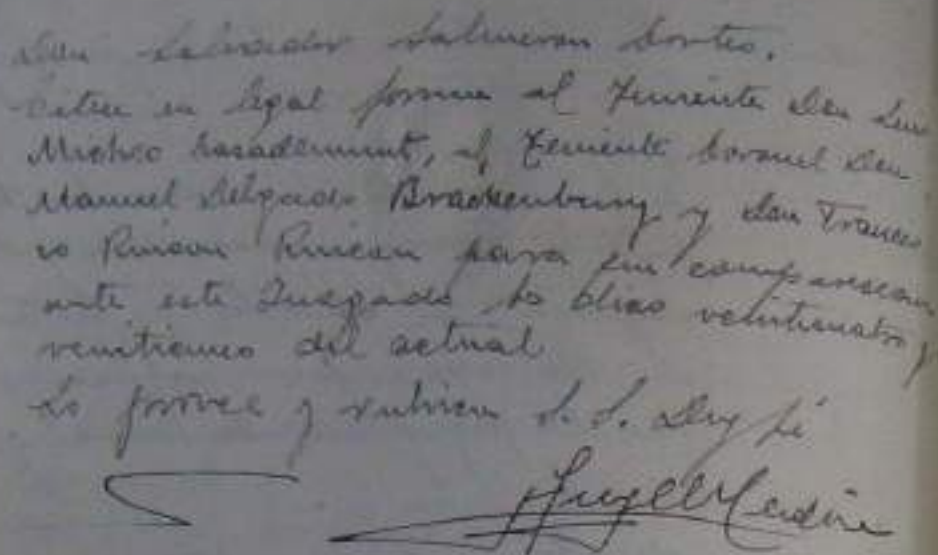 Don Salvador Salmeron Cortes.
Citese en legal forma al Teniente Don Luis
Micheo Casademunt, al Teniente Coronel Don
Manuel Delgado Brackenbury y Don Francis
co Rincon Rincon para que comparezcan
ante este Juzgado los dias veinticuatro y
veinticinco del actual
Lo provee y rubrica S. S. Doy fé
Angel Medina